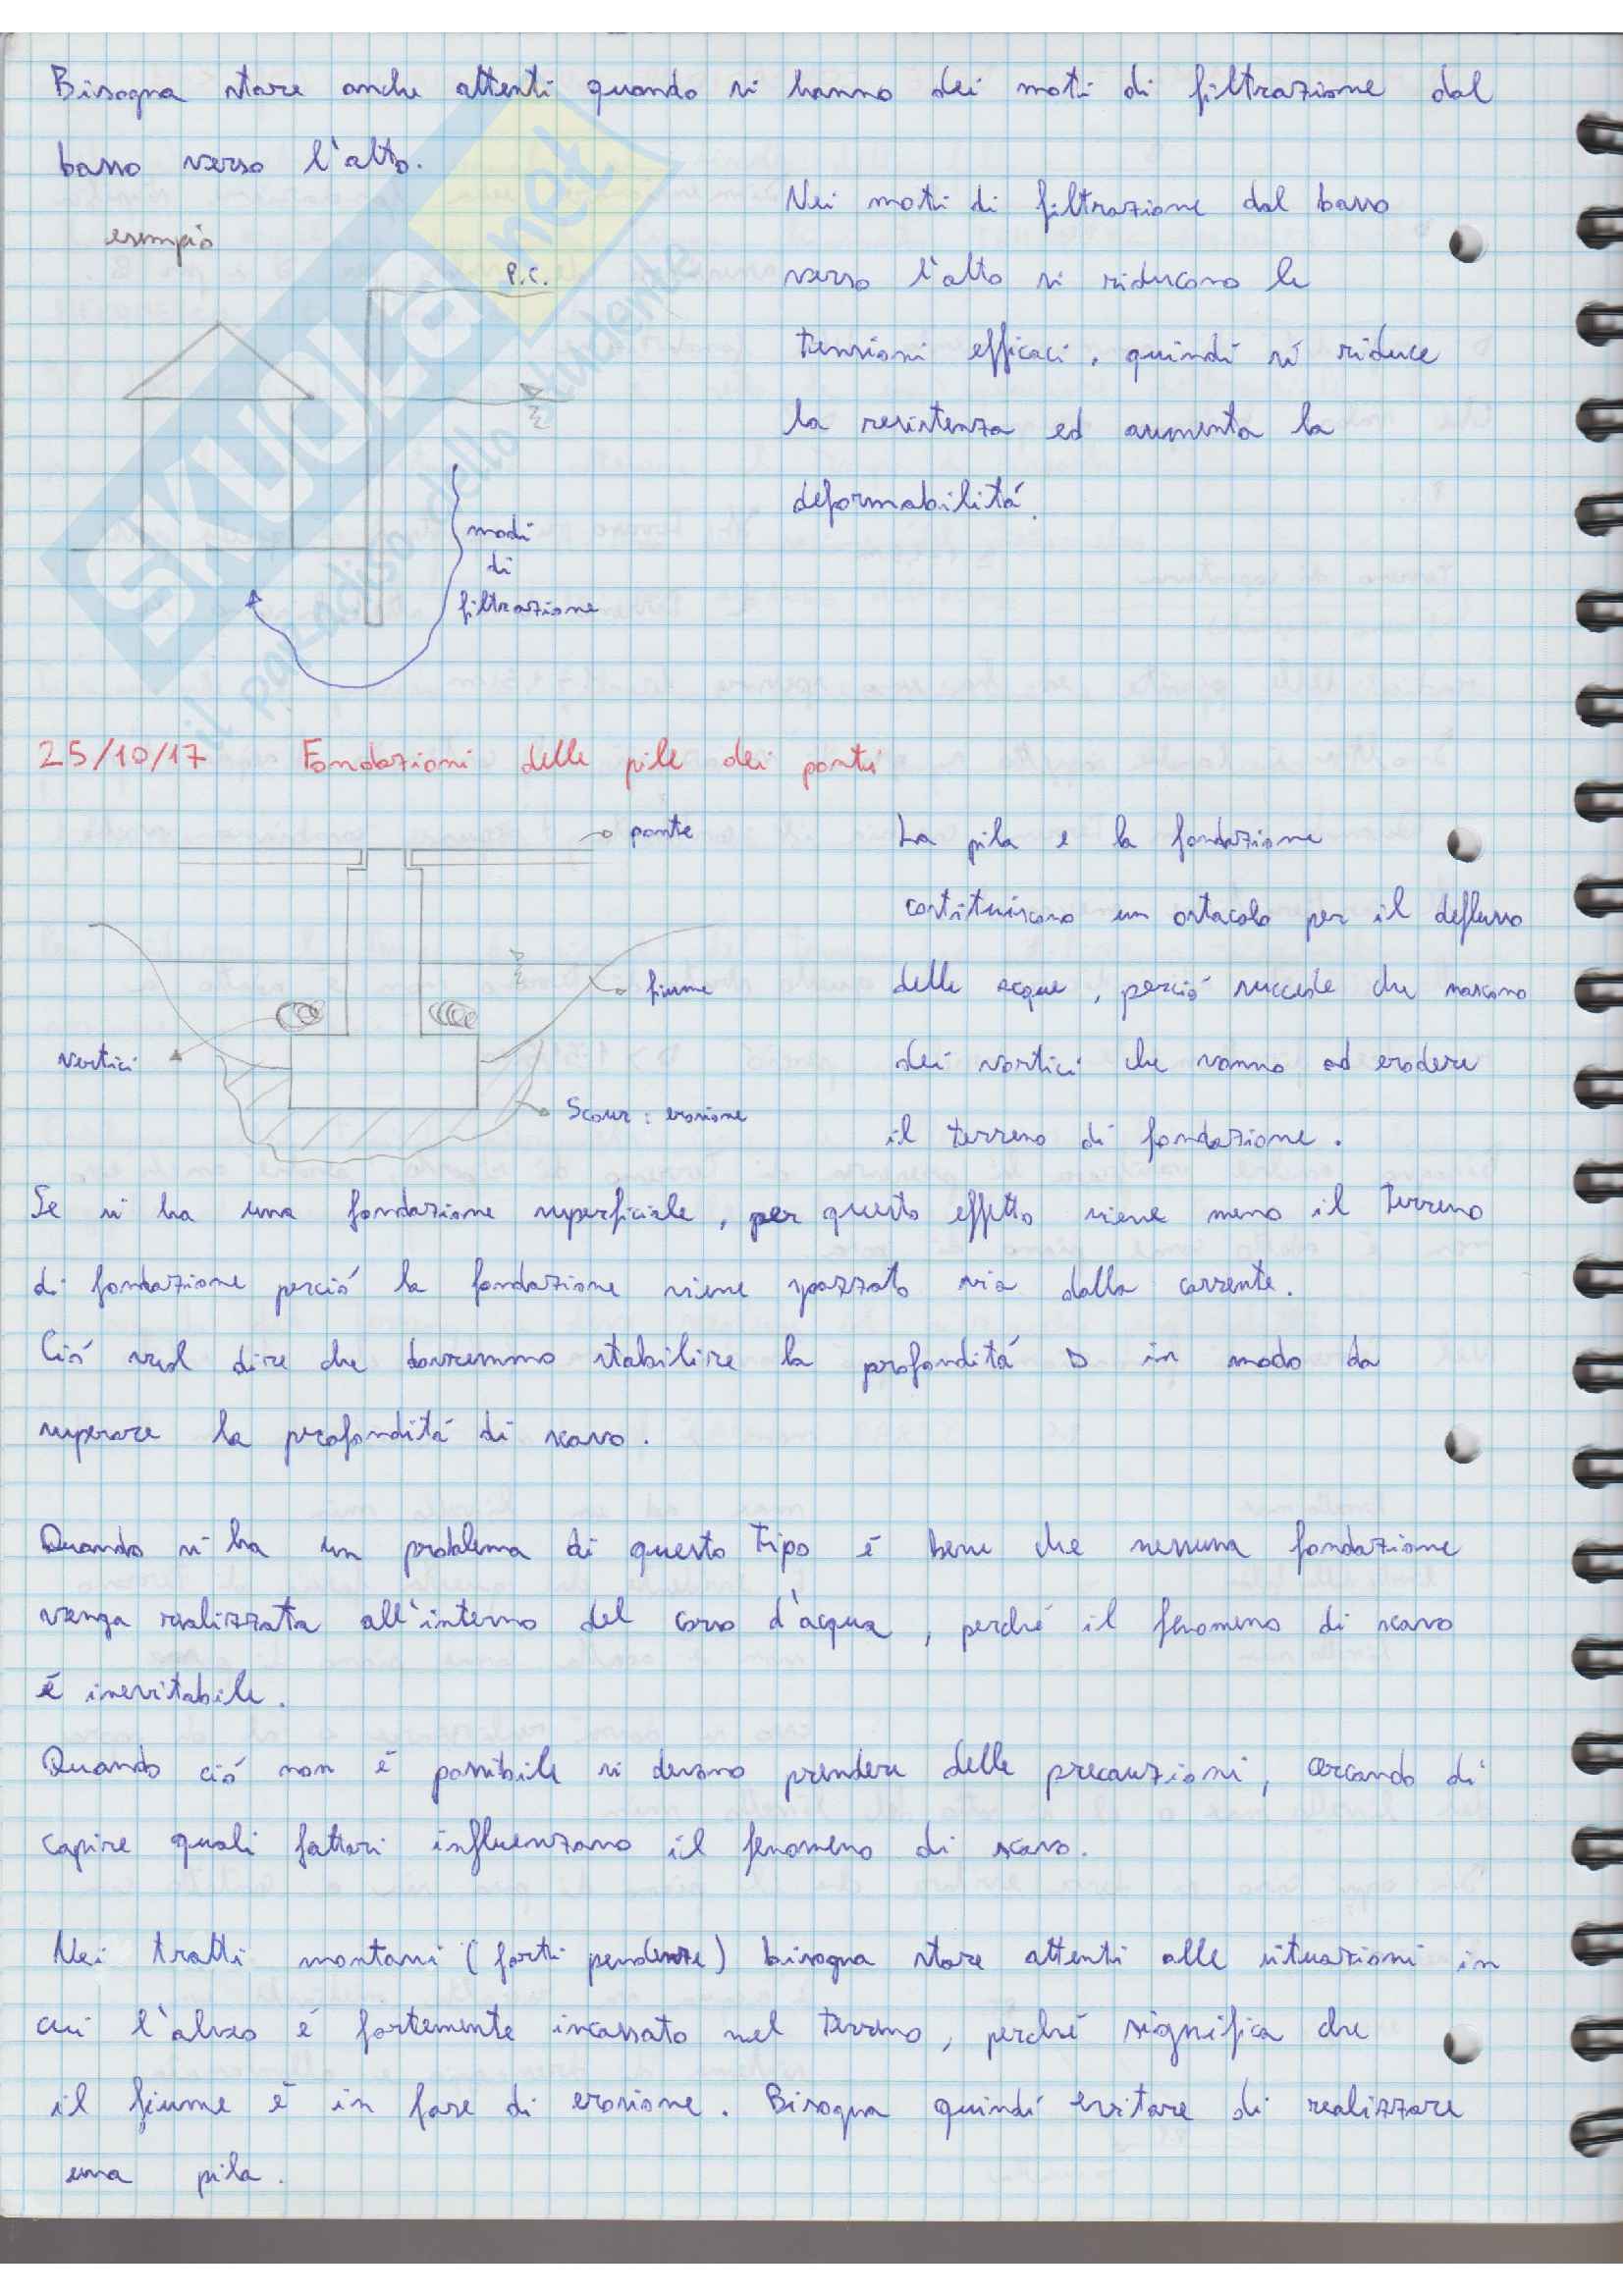 Bisogna stare anche attenti quando si hanno dei moti di filtrazione dal
basso verso l'alto.
esempio
P.C.
modi
di
filtrazione
Nei moti di filtrazione dal basso
verso l'alto si riducono le
tensioni efficaci, quindi si riduce
la resistenza ed aumenta la
deformabilitá.
SKUOLA.net
il paradiso dello studente
25/10/17 Fondazioni delle pile dei ponti
ponte
fiume
vortici
Scour: erosione
La pila e la fondazione
costituiscono un ostacolo per il deflusso
delle acque, perció succede che nascono
dei vortici che vanno ad erodere
il terreno di fondazione.
Se si ha una fondazione superficiale, per questo effetto viene meno il terreno
di fondazione perció la fondazione viene spazzato via dalla corrente.
Ció vuol dire che dovremmo stabilire la profonditá D in modo da
superare la profonditá di scavo.
Quando si ha un problema di questo tipo é bene che nessuna fondazione
venga realizzata all'interno del corso d'acqua, perché il fenomeno di scavo
é inevitabile.
Quando ció non é possibile si devono prendere delle precauzioni, cercando di
capire quali fattori influenzano il fenomeno di scavo.
Nei tratti montani (forti pendenze) bisogna stare attenti alle situazioni in
cui l'alveo é fortemente incassato nel terreno, perché significa che
il fiume é in fase di erosione. Bisogna quindi evitare di realizzare
una pila.